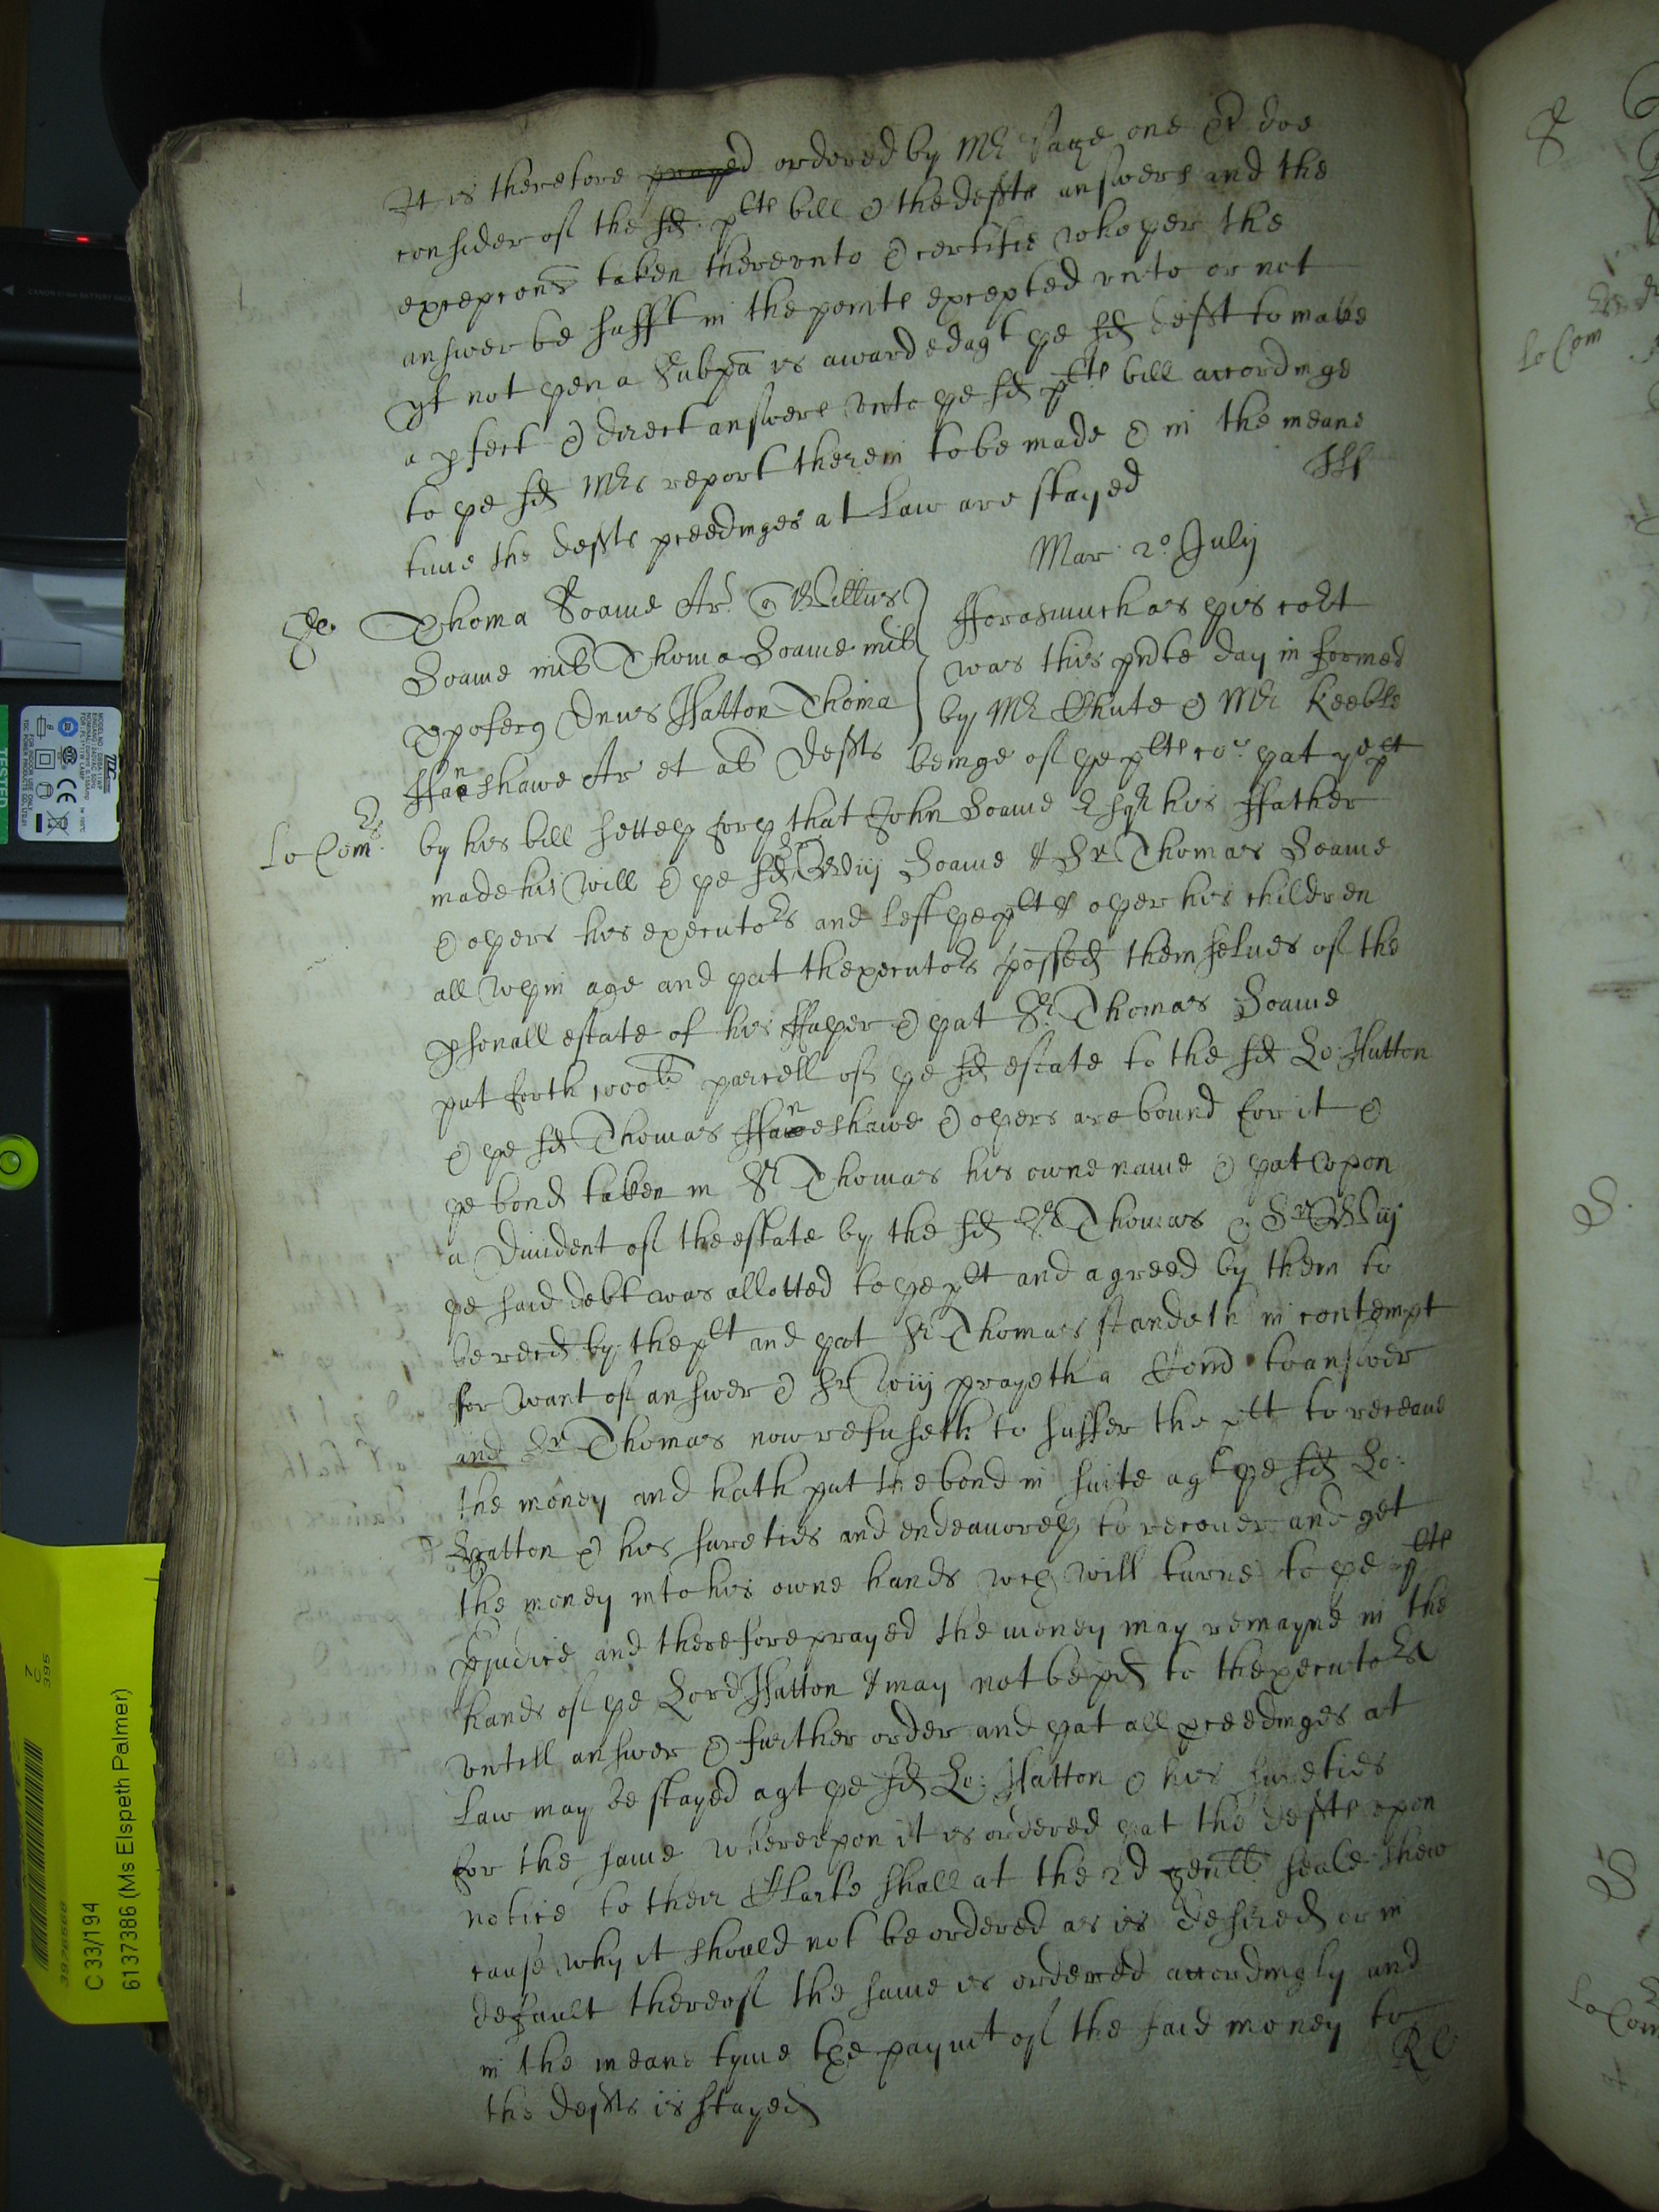 It is therefore prayed ordered by Mr Page one &c doe
consider of the sd plts bill & the defts answere and the
excepcons taken therevnto & certifie whoyer the
answer be sufft in the points excepted vnto or not
yf not yen a Subpa is awarded agt ye sd deft to make
a pfect & direct answere vnto ye sd plts bill accordinge
to ye sd Mrs report therein to be made & in the meane
time the defts pceedinges at Law are stayed
Mar 2o July
Thoma Soame Ar Willus
Soame mil Thoma Soame mil
Xpofer9 Dnus Hatton Thoma
ffanshawe Ar et al Defts
fforasmuch as yis cort
was this pnte day informed
by Mr Chute & Mr Keeble
beinge of ye plts co: yat ye plt
Lo Com
by his bill settey fory that John Soame Esqr his ffather
made his will & ye sd Sr Wm Soame & Sr Thomas Soame
& oyers his executors and left ye plt & oyer his children
all wyin age and yat thexecutors possed themselues of the
psonall estate of his ffayer & yat Sr Thomas Soame
put forth 1000li parcell of ye sd estate to the sd Lo: Hatton
& ye sd Thomas ffaneshawe & oyers are bound for it &
ye bond taken in Sr Thomas his owne name & yat vpon
a Diuident of the estate by the sd Sr Thomas & Sr Wm
ye said debt was allotted to ye plt and agreed by them to
be recd by the plt and yat Sr Thomas standeth in contempt
for want of answer & Sr Wm prayeth a Comd to answer
and Sr Thomas now refuseth to suffer the plt to receaue
the money and hath put the bond in suite agt ye sd Lo:
Hatton & his sureties and endeauorey to recouer and get
the money into his owne hands wch will turne to ye plts
pjudice and therefore prayed the money may remayne in the
hands of ye Lord Hatton & may not be pd to thexecutors
vntill answer & further order and yat all pceedinges at
Law may be stayed agt ye sd Lo: Hatton & his sureties
for the same wherevpon it is ordered yat the defts vpon
notice to their Clarke shall at the 2d genll seale shew
cause why it should not be ordered as is desired or in
default thereof the same is ordered accordingly and
in the meane tyme the paymt of the said money to
the defts is stayed
RC
Lo Com
TESTED
C 33/194
6137386 (Ms Elspeth Palmer)